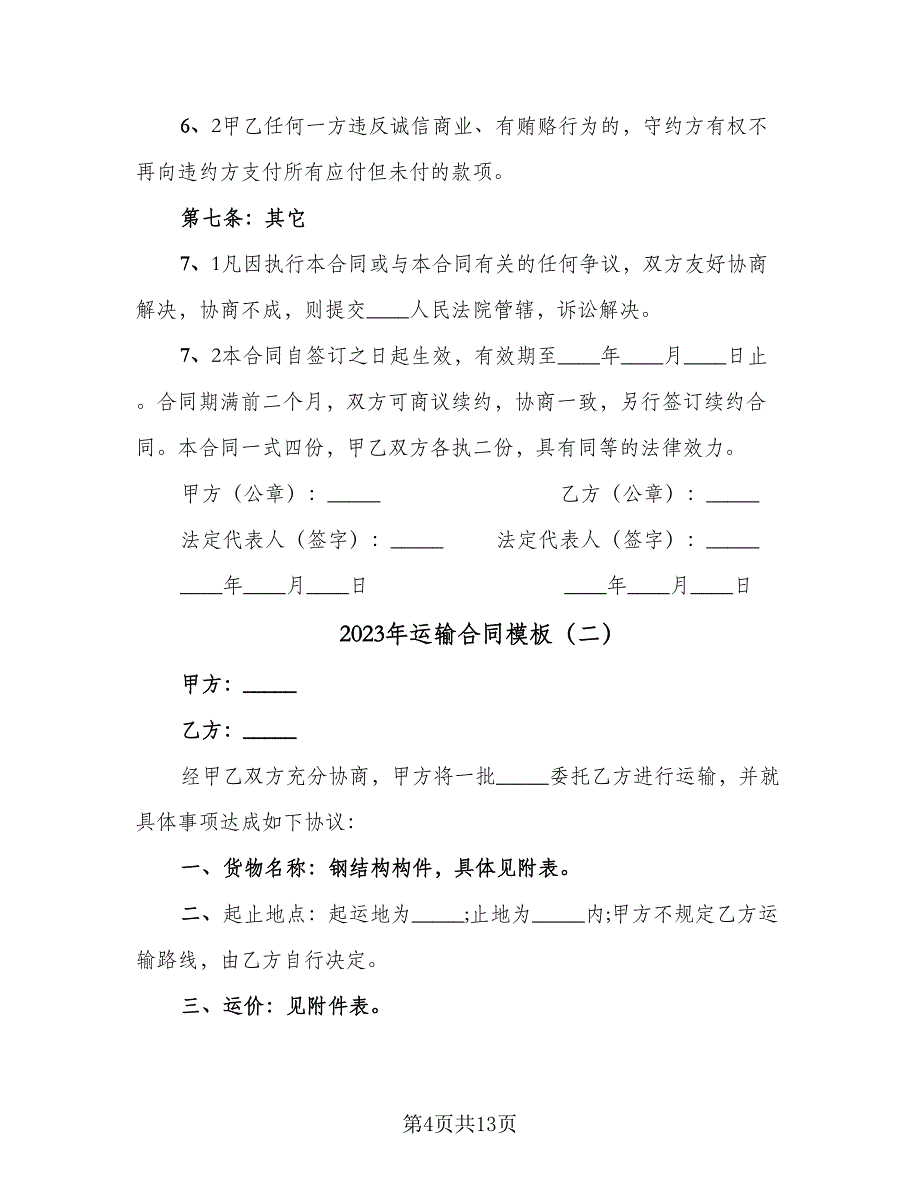 6、2甲乙任何一方违反诚信商业、有贿赂行为的，守约方有权不
再向违约方支付所有应付但未付的款项。
第七条：其它
7、1凡因执行本合同或与本合同有关的任何争议，双方友好协商
解决，协商不成，则提交____人民法院管辖，诉讼解决。
7、2本合同自签订之日起生效，有效期至____年____月____日止
。合同期满前二个月，双方可商议续约，协商一致，另行签订续约合
同。本合同一式四份，甲乙双方各执二份，具有同等的法律效力。
甲方（公章）：_____ 乙方（公章）：_____
法定代表人（签字）：_____ 法定代表人（签字）：_____
____年____月____日 ____年____月____日
2023年运输合同模板（二）
甲方：_____
乙方：_____
经甲乙双方充分协商，甲方将一批_____委托乙方进行运输，并就
具体事项达成如下协议：
一、货物名称：钢结构构件，具体见附表。
二、起止地点：起运地为_____;止地为_____内;甲方不规定乙方运
输路线，由乙方自行决定。
三、运价：见附件表。
第4页共13页